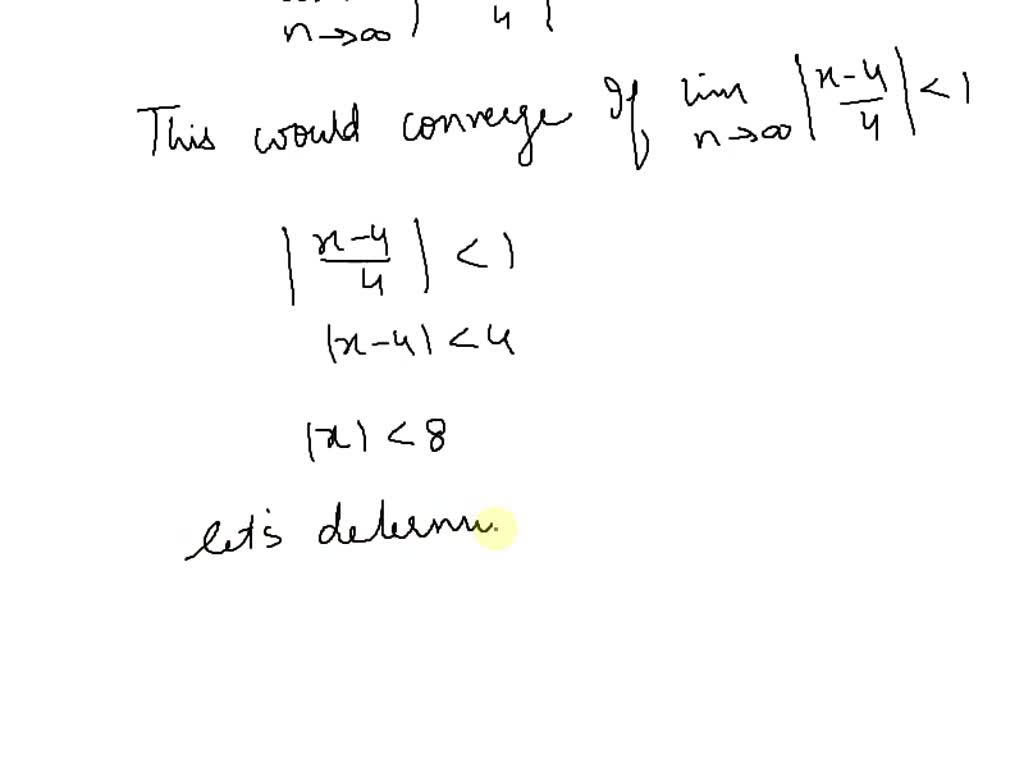 n→∞ | 4 |
This would converge If lim n→∞ |x-4/4| < 1
|x-4/4| < 1
|x-4| < 4
|x| < 8
let's determi